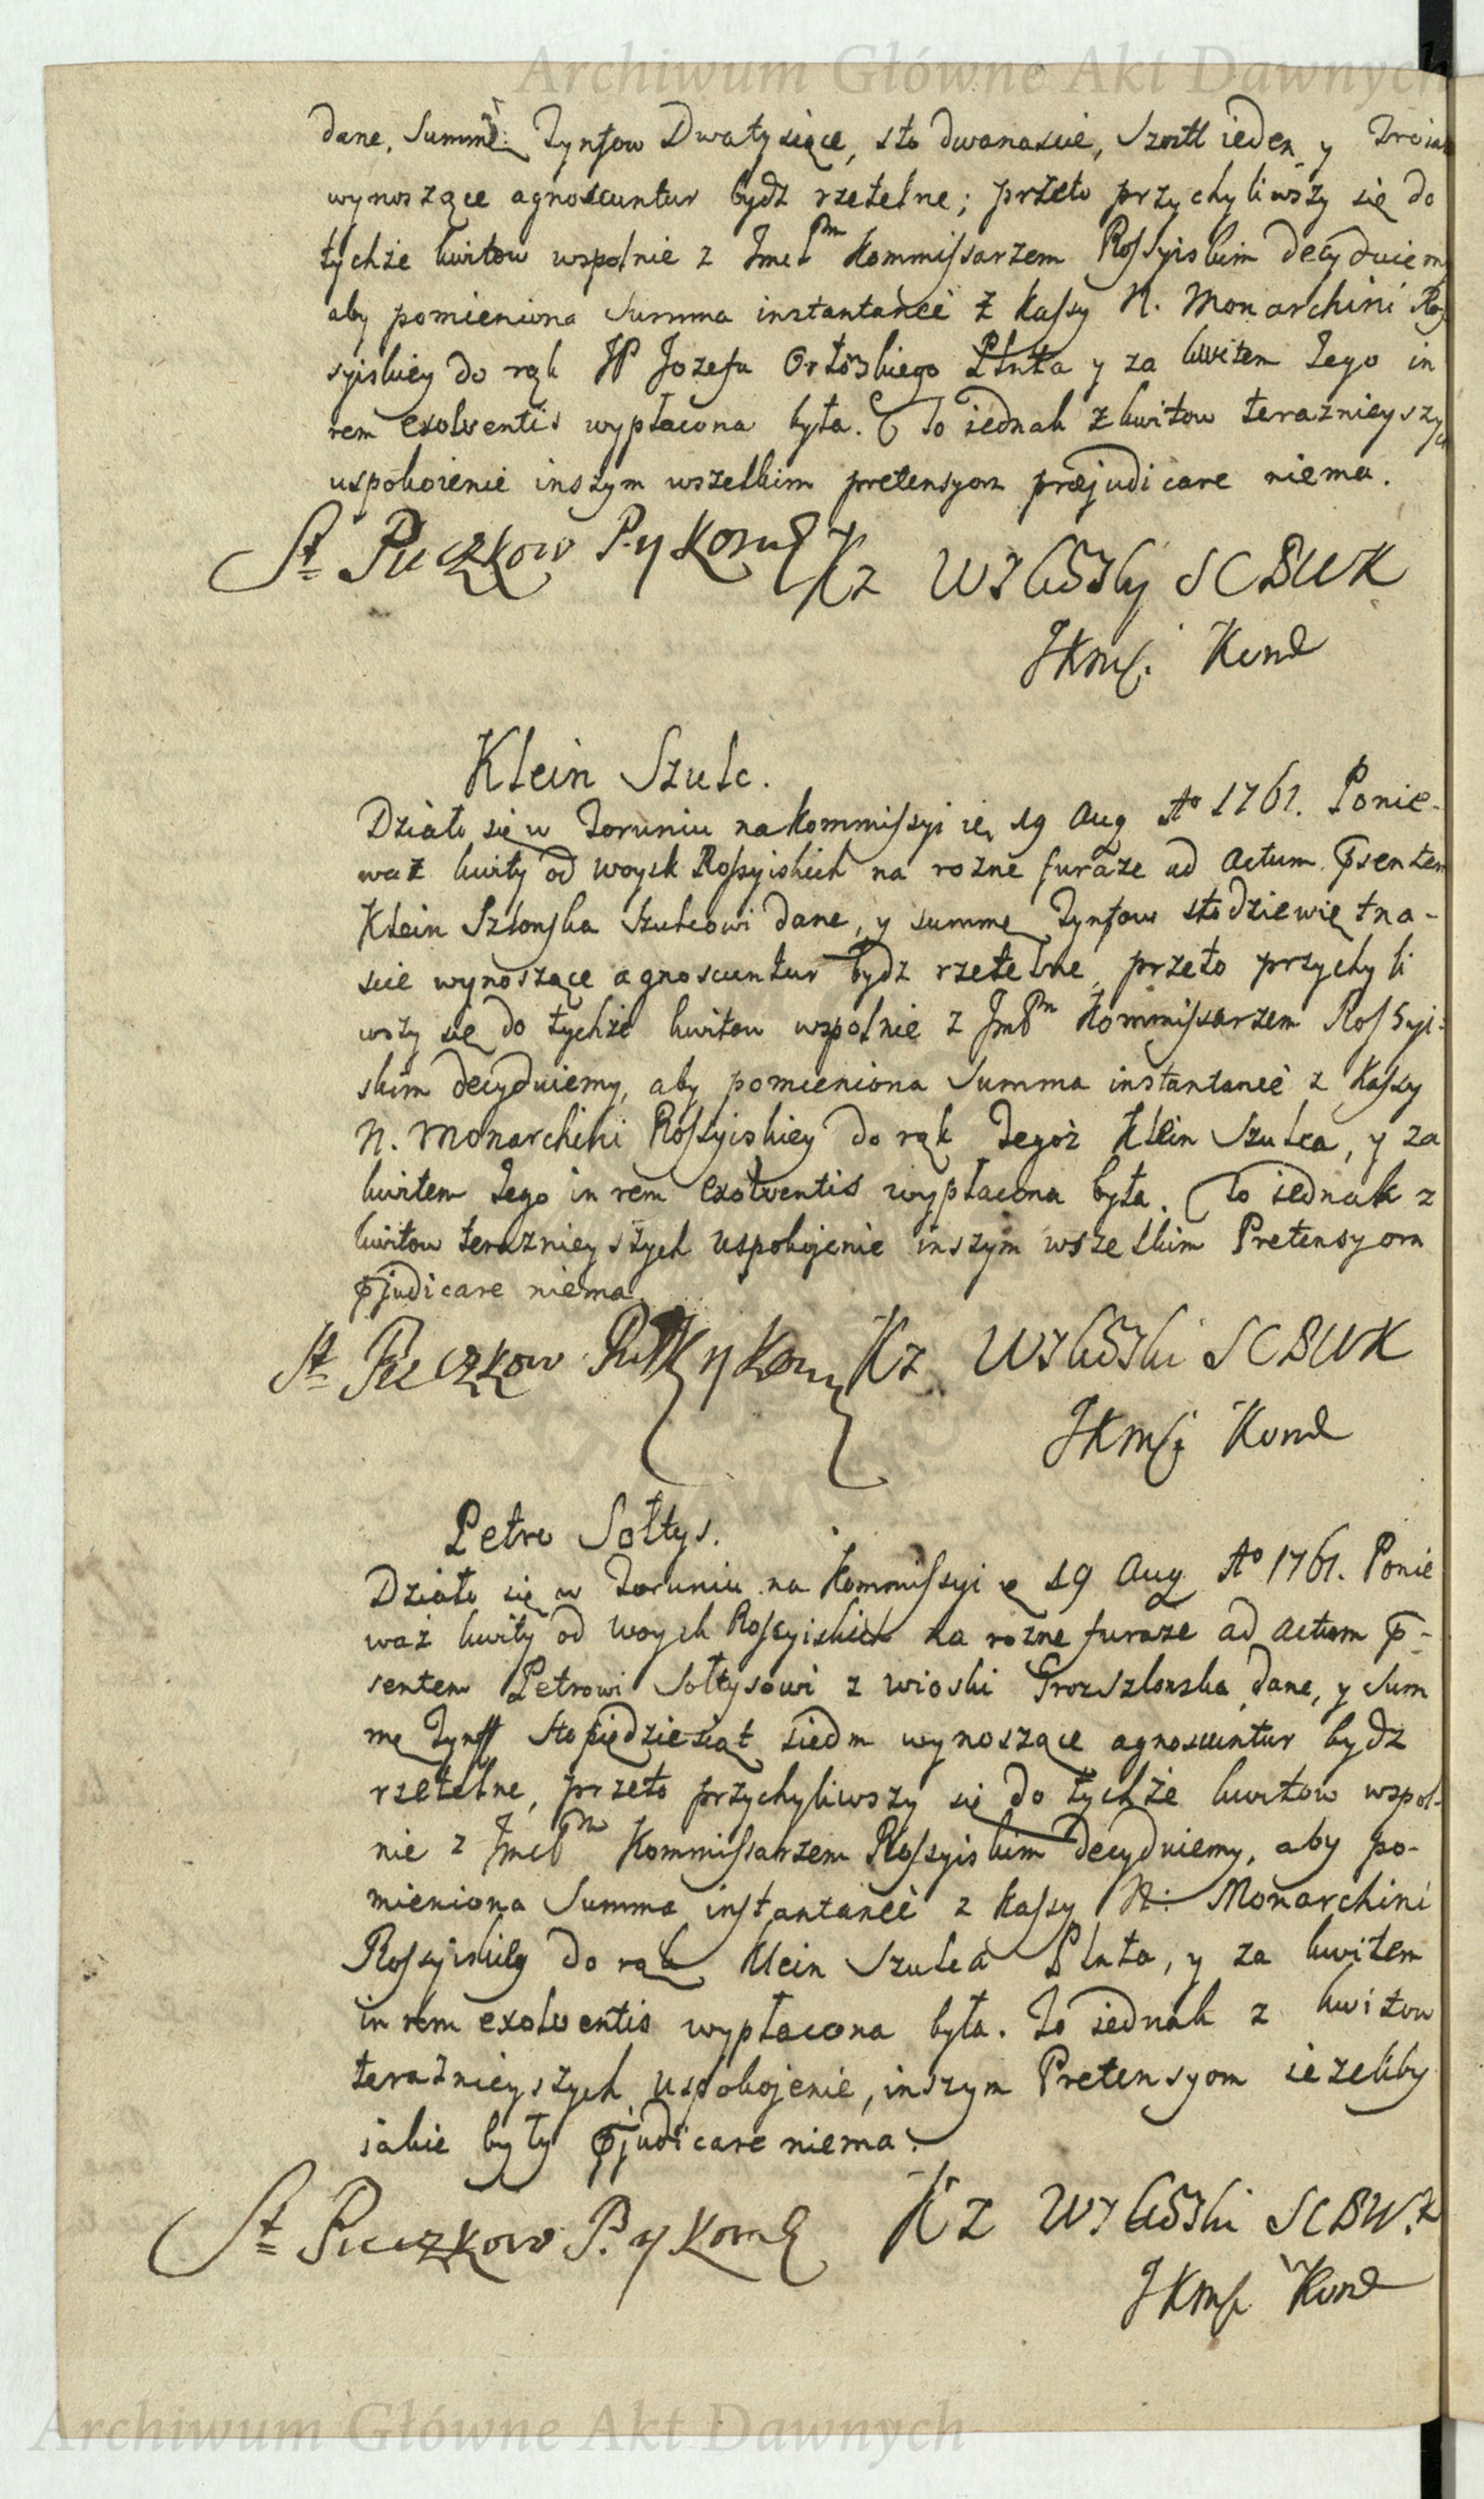 Archiwum Główne Akt Dawnych
dane, Summę Tynfow Dwatysiące, sto dwanascie, Szostk ieden y Troiak
wynoszące agnoscuntur bydz rzetelne; przeto przychyliwszy się do
tychże kwitow wspolnie z Kommissarzem Rossyiskim decyduiemy
aby pomieniona Summa instantaneè z Kassy N. Monarchini Ros
syiskiey do rąk JP Jozefa Orłoskiego Plnta y za kwitem Jego in
rem exolventis wypłacona była. To iednak z kwitow teraznieyszych
uspokoienie inszym wszelkim pretensyom præjudicare niema.
St Puczkow P. y Kom KZ Wilkoski SCBWK
JKMsi Kom
Klein Szulc.
Działo się w Toruniu na Kommissyi ię 19 Aug Ao 1761. Ponie-
waż kwity od woysk Rossyiskich na rozne furaże ad Actum Psentem
Klein Szlonska Szulcowi dane, y summę Tynfow sto dziewiętna-
scie wynoszące agnoscuntur bydz rzetelne, przeto przychyli
wszy się do tychże kwitow wspolnie z JmPm Kommissarzem Rossyi-
skim decyduiemy, aby pomieniona Summa instantaneè z Kassy
N. Monarchini Rossyiskiey do rąk Tegoż Klein Szulca, y za
kwitem Jego in rem exolventis wypłacona była. To iednak z
kwitow teraznieyszych uspokojenie inszym wszelkim Pretensyom
pjudicare niema.
St Puczkow Pułk y Kom KZ Wilkoski SCBWK
JKMsi Kom
Petro Sołtys.
Działo się w Toruniu na Kommissyi ę 19 Aug Ao 1761. Ponie
waż kwity od woysk Rossyiskich na rozne furaże ad actum p-
sentem Petrowi Sołtysowi z wioski GrosSzlonska dane, y Sum
mę Tynff sto pięcdziesiąt siedm wynoszące agnoscuntur bydz
rzetelne, przeto przychyliwszy się do tychże kwitow wspol-
nie z Kommissarzem Rossyiskim decyduiemy, aby po-
mieniona Summa instantaneè z Kassy N: Monarchini
Rossyiskiey do rąk Klein Szulca Plnta, y za kwitem
in rem exolventis wypłacona była. To iednak z kwitow
teraznieyszych uspokojenie, inszym Pretensyom ieżeliby
iakie były pjudicare niema.
St Puczkow P. y Kom KZ Wilkoski SCBW.K
JKMsi Kom
Archiwum Główne Akt Dawnych